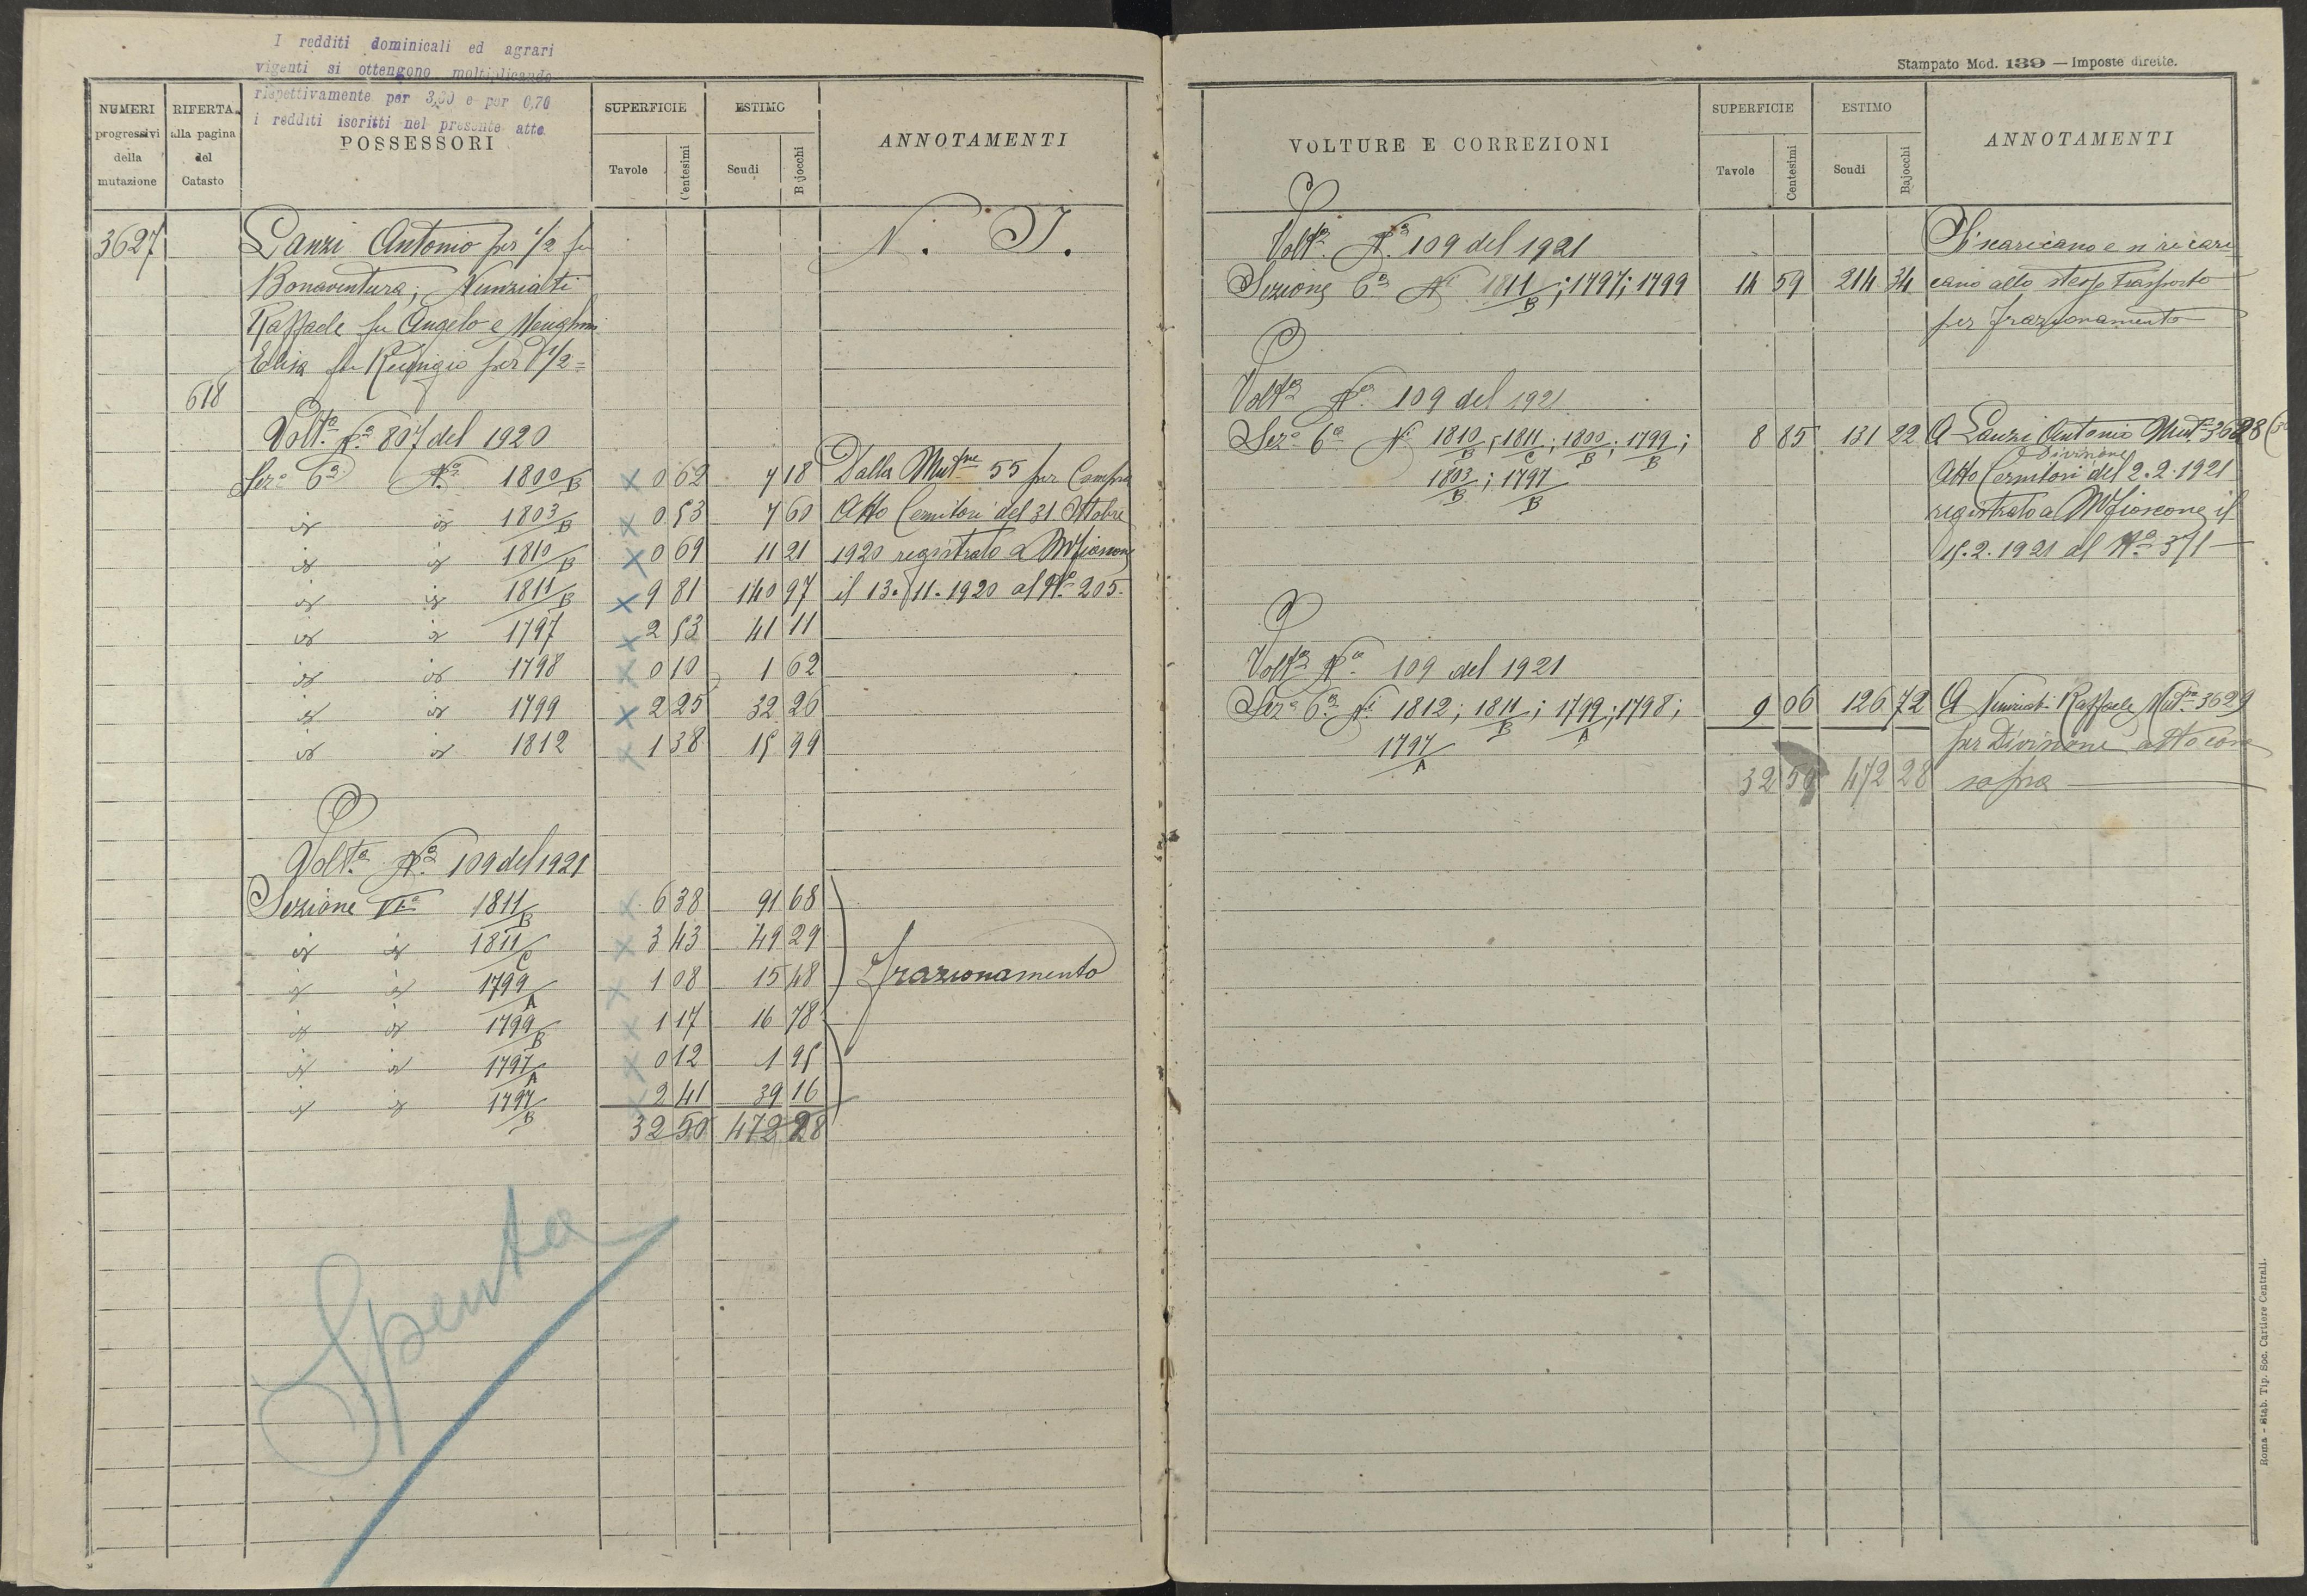 I redditi dominicali ed agrari
vigenti si ottengono moltiplicando
rispettivamente per 3,60 e per 0,70
i redditi iscritti nel presente atto
NUMERI progressivi della mutazione
RIFERTA alla pagina del Catasto
POSSESSORI
SUPERFICIE Tavole Centesimi
ESTIMO Scudi Bajocchi
ANNOTAMENTI
3627 Lanzi Antonio per 1/2 fu N. I.
Bonaventura; Nunziati
Raffaele fu Angelo e Menghini
Elisa fu Remigio per 1/2 =
618
Volta No 807 del 1920
Sez. 6a No 1800/B 0 62 7 18 Dalla Mutne 55 per Compra
id id 1803/B 0 53 7 60 Atto Cernitori del 31 Ottobre
id id 1810/B 0 69 11 21 1920 registrato a Mfiascone
id id 1811/B 9 81 140 97 il 13.11.1920 al No 205.
id id 1797 2 53 41 11
id id 1798 0 10 1 62
id id 1799 2 25 32 26
id id 1812 1 38 15 99
Volta No 109 del 1921
Sezione VIa 1811/B 6 38 91 68
id id 1811/C 3 43 49 29
id id 1799/A 1 08 15 48 frazionamento
id id 1799/B 1 17 16 78
id id 1797/A 0 12 1 95
id id 1797/B 2 41 39 16
32 50 472 28
Spenta
Stampato Mod. 139 — Imposte dirette.
VOLTURE E CORREZIONI
SUPERFICIE Tavole Centesimi
ESTIMO Scudi Bajocchi
ANNOTAMENTI
Volta No 109 del 1921 Si scaricano e si ricari
Sezione 6a Ni 1811/B; 1797; 1799 14 59 214 34 cano allo stesso trasporto
per frazionamento
Volta No 109 del 1921
Sez. 6a Ni 1810/B; 1811/C; 1800/B; 1799/B; 8 85 131 22 A Lanzi Antonio Mutne 3628
1803/B; 1797/B
Divisione
Atto Cernitori del 2.2.1921
registrato a Mfiascone il
15.2.1921 al No 371
Volta No 109 del 1921
Sez. 6a Ni 1812; 1811/B; 1799/A; 1798; 9 06 126 72 A Nunziati Raffaele Mutne 3629
1797/A per Divisione atto come
32 50 472 28 sopra
Roma - Stab. Tip. Soc. Cartiere Centrali.